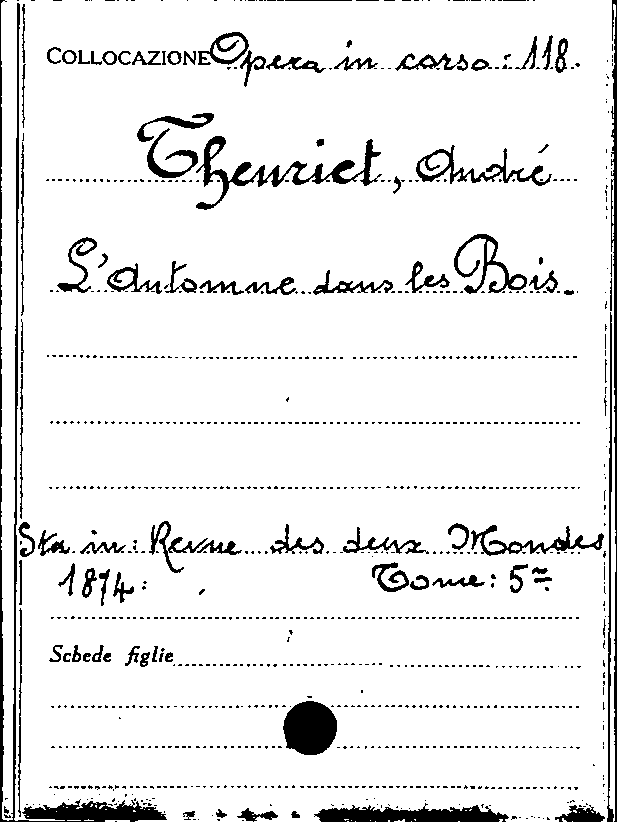 COLLOCAZIONE Opera in corso: 118.
Theuriet, André
L'Automne dans les Bois.
Sta in: Revue des deux Mondes
1874: Tome: 5=
Schede figlie